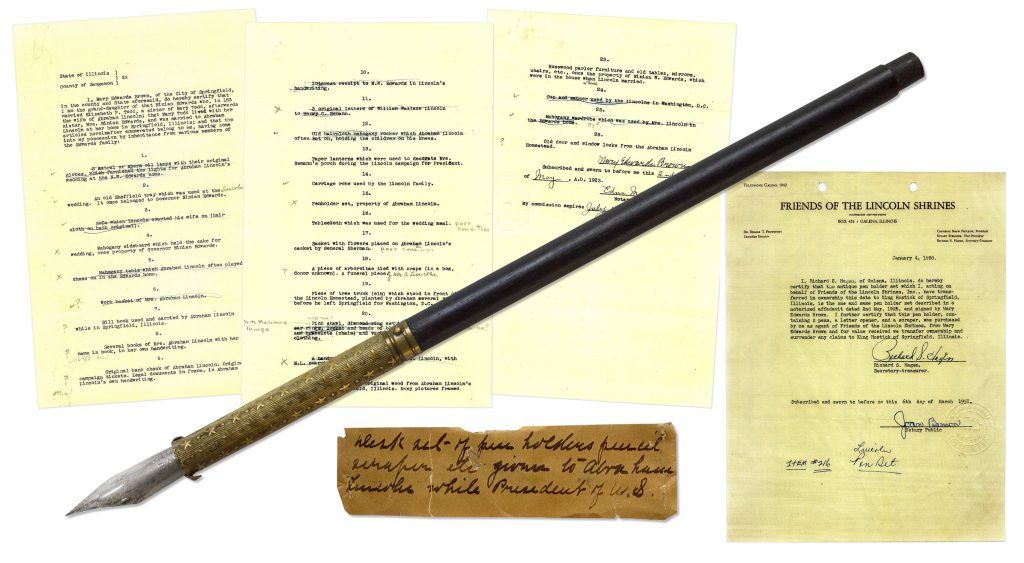 State of Illinois )
) SS
county of Sangamon )
I, Mary Edwards Brown, of the City of Springfield,
in the county and State aforesaid, do hereby certify that
I am the grand-daughter of that Ninian Edwards who, in 183
married Elizabeth P. Todd, a sister of Mary Todd, afterwards
the wife of Abraham Lincoln; that Mary Todd lived with her
sister, Mrs. Ninian Edwards, and was married to Abraham
Lincoln at her home in Springfield, Illinois; and that the
articles hereinafter enumerated belong to me, having come
into my possession by inheritance from various members of
the Edwards family:
1.
Astral or sperm oil lamps with their original
globes, which furnished the lights for Abraham Lincoln's
wedding at the N.W. Edwards home.
2.
An old Sheffield tray which was used at the Lincoln
wedding. It once belonged to Governor Ninian Edwards.
3.
Sofa which Lincoln courted his wife on (hair
cloth on back original).
4.
Mahogany sideboard which held the cake for
wedding, once property of Governor Ninian Edwards.
5.
Mahogany table which Abraham Lincoln often played
chess on in the Edwards home.
6.
Work basket of Mrs. Abraham Lincoln.
7.
Bill book used and carried by Abraham Lincoln
while in Springfield, Illinois.
8.
Several books of Mrs. Abraham Lincoln with her
name in book, in her own handwriting.
9.
Original bank check of Abraham Lincoln. Origin
campaign tickets. Legal documents in frame, in Abraham
Lincoln's own handwriting.
10.
Interest receipt to N.W. Edwards in Lincoln's
handwriting.
11.
A original letter of William Wallace Lincoln
to Henry C. Remann.
12.
Old haircloth mahogany rocker which Abraham Lincoln
often sat on, holding the children on his knees.
13.
Paper lanterns which were used to decorate Mrs.
Remann's porch during the Lincoln campaign for President.
14.
Carriage robe used by the Lincoln family.
15.
Penholder set, property of Abraham Lincoln.
16.
Tablecloth which was used for the wedding meal. poor condition
17.
Basket with flowers placed on Abraham Lincoln's
casket by General Sherman. poor condition
18.
A piece of arborvitae tied with crape (in a box,
donor unknown). A funeral piece of Mr. A. Lincoln
19.
Piece of tree trunk (elm) which stood in front
the Lincoln Homestead, planted by Abraham Lincoln several
before he left Springfield for Washington, D.C.
20.
Pink shawl, diamond ring set
ear rings, locket and beads of
and bracelets (chain) and
clothing.
A hand Lincoln, with
M.L.
original wood from Abraham Lincoln's
field, Illinois. Many pictures framed
23.
Rosewood parlor furniture and old tables, mirrors,
chairs, etc., once the property of Ninian W. Edwards, which
were in the house when Lincoln married.
24.
Cup and saucer used by the Lincolns in Washington, D.C.
25.
Mahogany wardrobe which was used by Mrs. Lincoln in
the Edwards home.
26.
Old door and window locks from the Abraham Lincoln
Homestead.
Mary Edwards Brown
Subscribed and sworn to before me this 2nd
of May, A.D. 1928.
Edna
Notary
My commission expires: July
TELEPHONE GALENA 1042
FRIENDS OF THE LINCOLN SHRINES
BOX 431 • GALENA, ILLINOIS
January 4, 1958.
I, Richard S. Hagen, of Galena, Illinois, do hereby
certify that the antique pen holder set which I, acting on
behalf of Friends of the Lincoln Shrines, Inc., have trans-
ferred in ownership this date to King Hostick of Springfield,
Illinois, is the same pen holder set described in a
notarized affidavit dated 2nd May, 1928, and signed by Mary
Edwards Brown. I further certify that this pen holder set, con-
taining 2 pens, a letter opener, and a scraper, was purchased
by me as agent of Friends of the Lincoln Shrines, from Mary
Edwards Brown and for value received we transfer ownership and
surrender any claims to King Hostick of Springfield, Illinois.
Richard S. Hagen
Richard S. Hagen,
Secretary-treasurer.
Subscribed and sworn to before me this 6th day of March 1958.
Joan Benson
Notary Public
Lincoln
ITEM #216 Pen Set
Desk set of pen holders pencil
scraper etc given to Abraham
Lincoln while President of U.S.